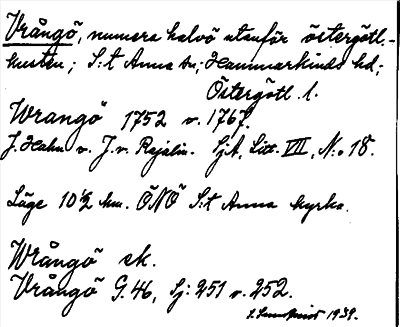 Vrångö, numera halvö utanför östergötl.-
kusten; S:t Anna sn, Hammarkinds hd;
Östergötl. l.
Wrangö 1752 v. 1767.
J. Hahn v. J. v. Rajalin. SjA, Litt. VII, N:o 18.
Läge 10 1/2 km. ÖNÖ S:t Anna kyrka.
Wrångö ek.
Vrångö G. 46, Sj: 251 v. 252.
1939.